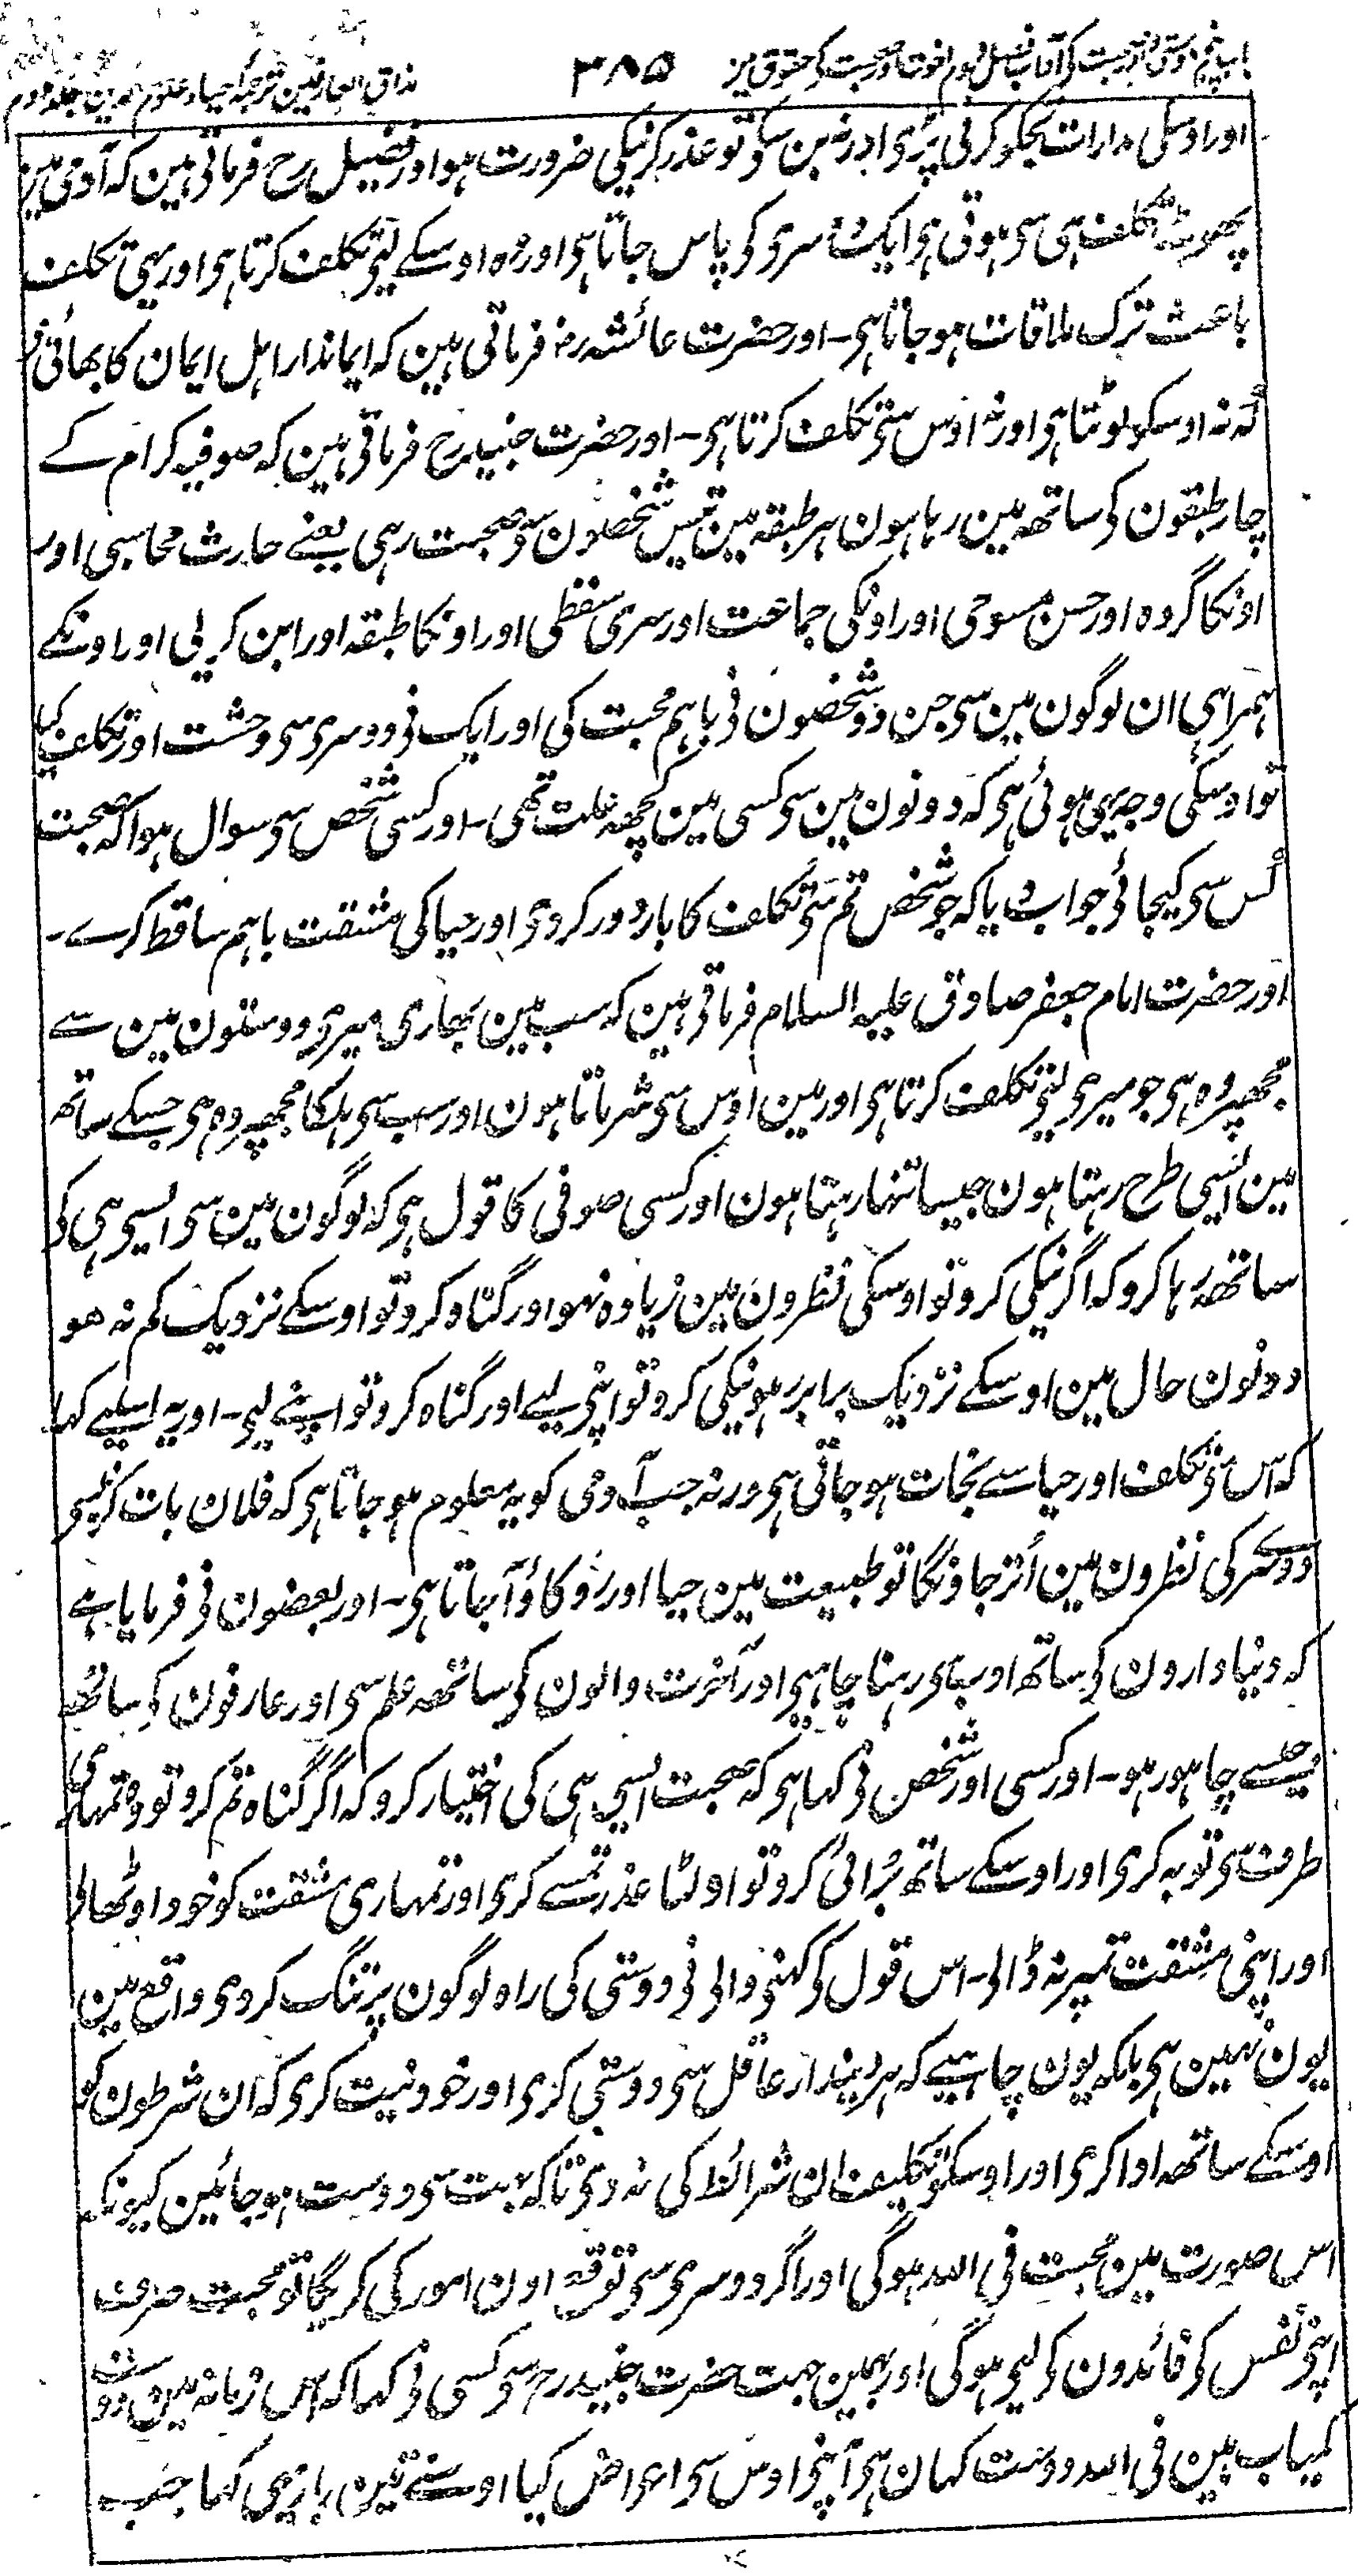 باب پنجم دوستی اور صحبت کی آداب فصل دوم اخوت اور صحبت کے حقوق میں ۳۸۵ مذاق العارفین ترجمہ احیاء علوم الدین جلد دوم
اور اوسکی مدارات تجکو کرنی پڑی اور نہ بن سکی تو عذر کرنیکی ضرورت ہو اور فضیل رح فرماتی ہین کہ آدمی مین
پھوٹ تکلف ہی سی ہوتی ہی ایک دوسری کی پاس جاتا ہی اور وہ اوسکے لیی تکلف کرتا ہی اور یہی تکلف
باعث ترک ملاقات ہو جاتا ہی۔ اور حضرت عائشہ رضہ فرماتی ہین کہ ایماندار اہل ایمان کا بھائی ہی
کہ نہ اوسکو لوٹتا ہی اور نہ اوس سی تکلف کرتا ہی۔ اور حضرت جنید رح فرماتی ہین کہ صوفیہ کرام کے
چار طبقون کی ساتھ مین رہا ہون ہر طبقہ مین تیس شخصون سی صحبت رہی یعنے حارث محاسبی اور
اونکا گروہ اور حسن مسوحی اور اونکی جماعت اور سری سقطی اور اونکا طبقہ اور ابن کریبی اور اونکے
ہمراہی ان لوگون مین سی جن دو شخصون نی باہم محبت کی اور ایک نی دوسری سی وحشت اور تکلف کیا
تو اوسکی وجہ یہی ہوئی ہی کہ دونون مین سی کسی مین کچھ علت تھی۔ اور کسی شخص سی سوال ہوا کہ صحبت
کس سی کیجائی جواب دیا کہ جو شخص تم سی تکلف کا بار دور کردی اور حیا کی مشقت باہم ساقط کرے۔
اور حضرت امام جعفر صادق علیہ السلام فرماتی ہین کہ سب مین بھاری میری دوستون مین سے
مجھپر وہ ہی جو میری لیی تکلف کرتا ہی اور مین اوس سی شرماتا ہون اور سب سی ہلکا مجھپر وہ ہی جسکے ساتھ
مین ایسی طرح رہتا ہون جیسا تنہا رہتا ہون اور کسی صوفی کا قول ہی کہ لوگون مین سی ایسی ہی کی
ساتھ رہا کرو کہ اگر نیکی کرو تو اوسکی نظرون مین زیادہ نہو اور گناہ کرو تو اوسکے نزدیک کم نہ ھو
دونون حال مین اوسکے نزدیک برابر ہو نیکی کرو تو اپنی لیے اور گناہ کرو تو اپنے لیی۔ اور یہ اسلیے کہا
کہ اس سی تکلف اور حیا سے نجات ہو جاتی ہی ورنہ جب آدمی کو یہ معلوم ہو جاتا ہی کہ فلان بات کرنیسی
دوسرے کی نظرون مین اُتر جاؤنگا تو طبیعت مین حیا اور روکاؤ آجاتا ہی۔ اور بعضون نی فرمایا ہے
کہ دنیا دارون کی ساتھ ادب سی رہنا چاہیی اور آخرت والون کی ساتھ علم سی اور عارفون کی ساتھ
جیسے چاہو رہو۔ اور کسی اور شخص نی کہا ہی کہ صحبت ایسی ہی کی اختیار کرو کہ اگر گناہ تم کرو تو وہ تمہاری
طرف سی توبہ کری اور اوسکے ساتھ بُرائی کرو تو اولٹا عذر تمسے کری اور تمہاری مشقت کو خود اوٹھالی
اور اپنی مشقت تمپر نہ ڈالی۔ اس قول کی کہنی والی نی دوستی کی راہ لوگون پر تنگ کردی واقع مین
یون نہین ہی بلکہ یون چاہیے کہ ہر دیندار عاقل سی دوستی کری اور خود نیت کری کہ ان شرطون کو
اوسکے ساتھ ادا کری اور اوسکو تکلیف ان شرائط کی نہ دی تاکہ بہت سی دوست ہو جائین کیونکہ
اس صورت مین محبت فی اللہ ہوگی اور اگر دوسری سی توقع اون امور کی کریگا تو محبت صرف
اپنی نفس کی فائدون کی لیی ہوگی اور ہمین جہت حضرت جنید رح سی کسی نی کہا کہ اس زمانہ مین دوست
کمیاب ہین فی اللہ دوست کہان ہی آپنی اوس سی اعراض کیا اوسنے تین بار یہی کہا جب